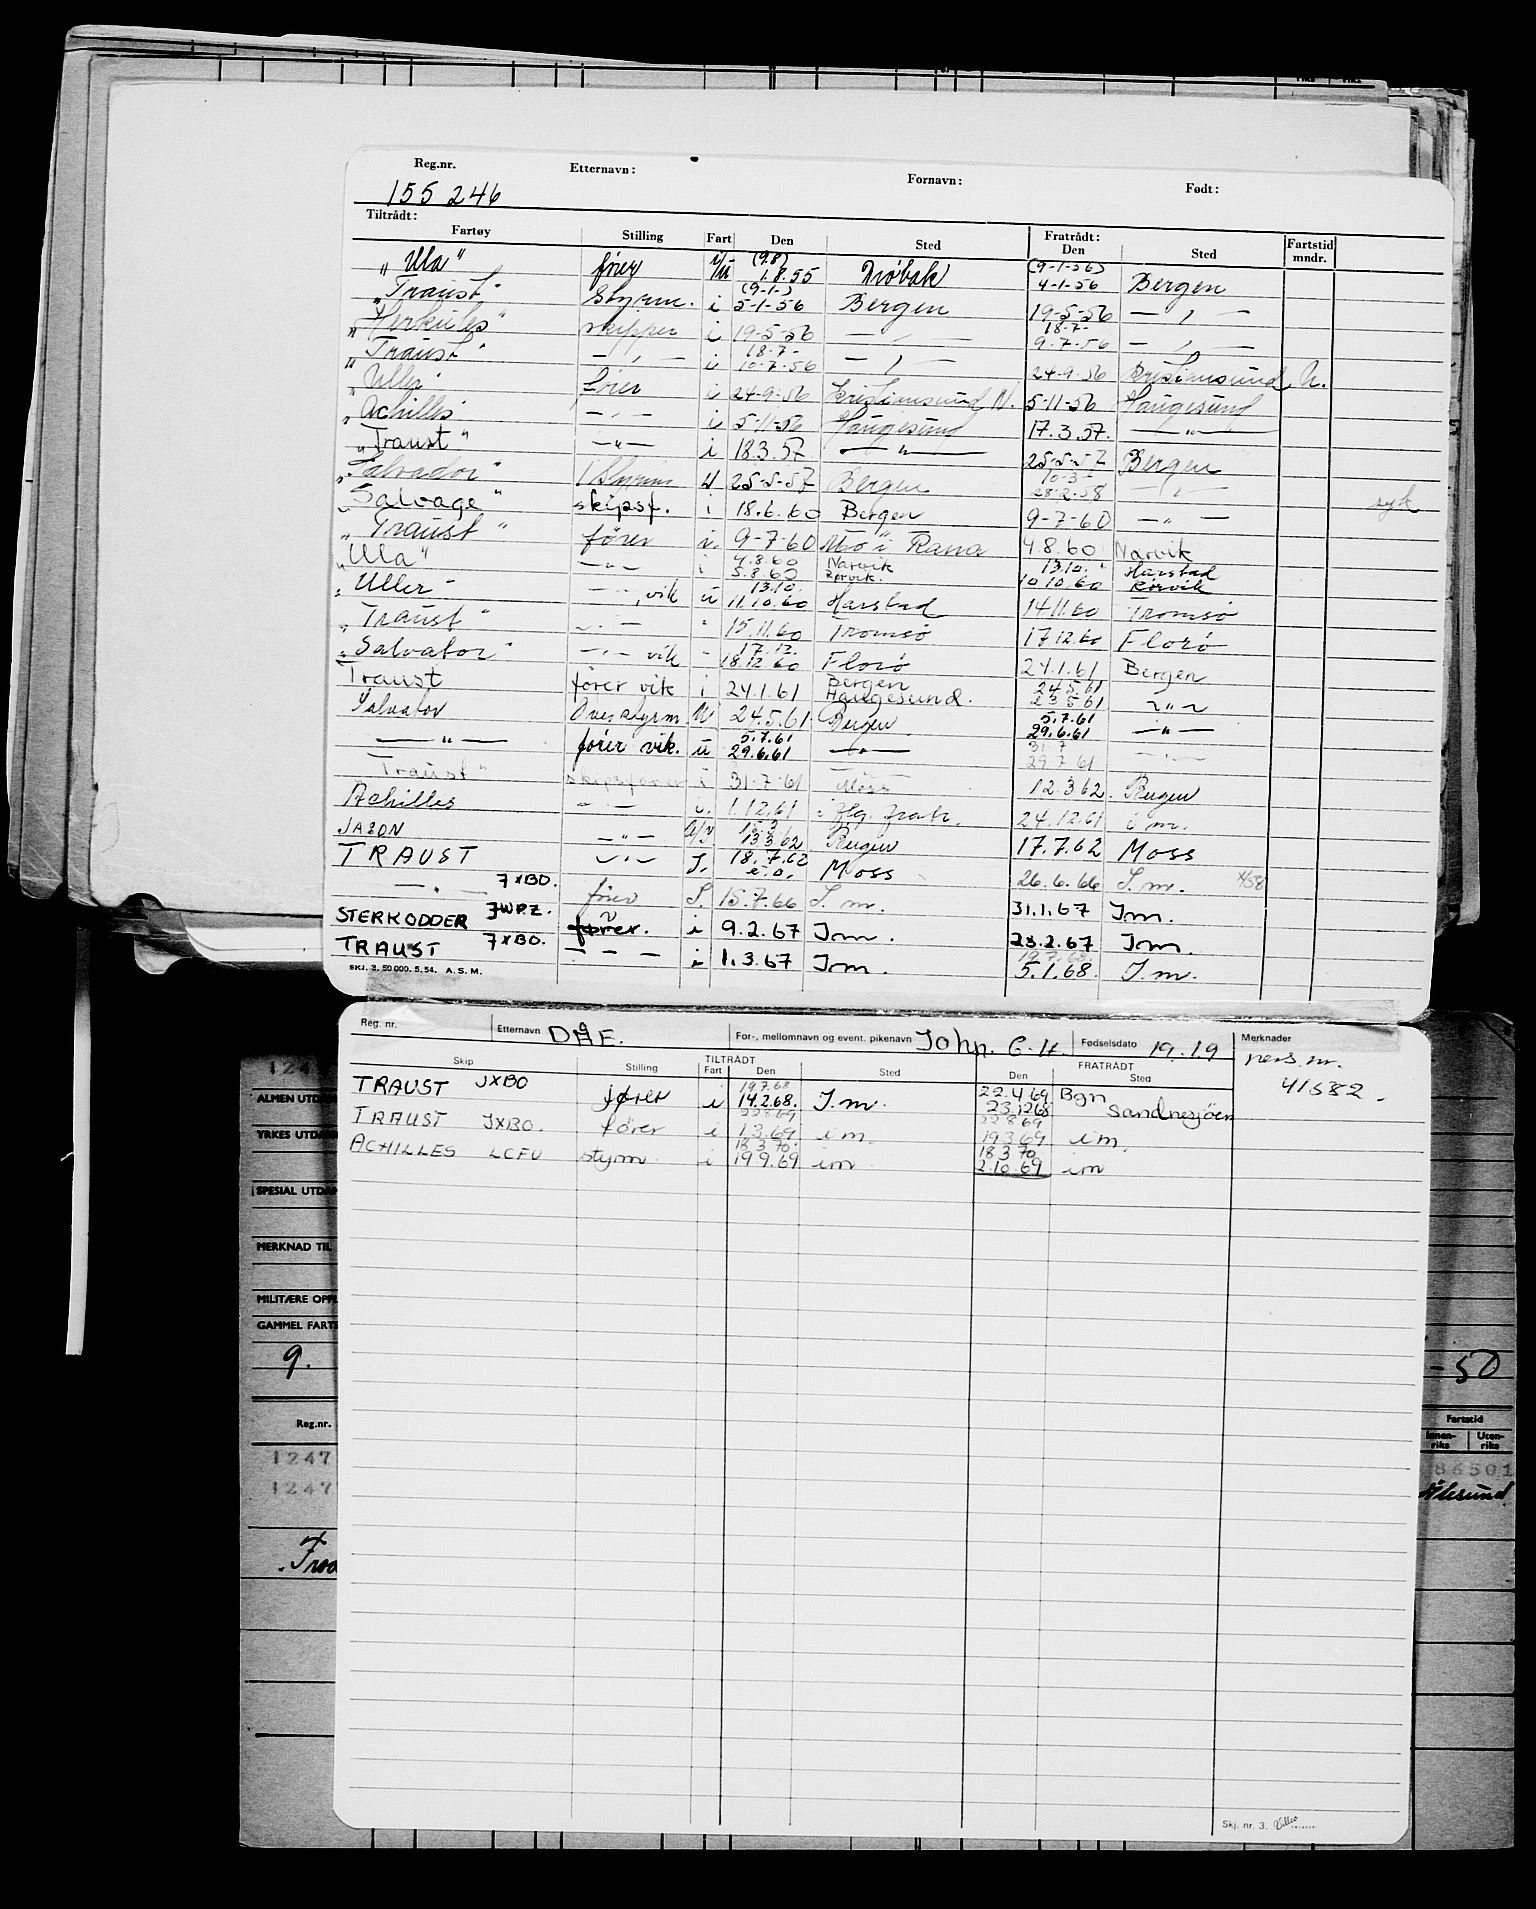 Reg.nr. Etternavn: Fornavn: Født:
155 246
Tiltrådt: Fratrådt:
Fartøy Stilling Fart Den Sted Den Sted Fartstid mndr.
"Ula" fører i/u (9.8) 1.8.55 Drøbak (9-1-56) 4-1-56 Bergen
"Traust" Styrm. i (9-1-) 5-1-56 Bergen 19-5-56 — " —
"Herkules" skipper i 19-5-56 — " — 18.7- 9-7-56 — " —
"Traust" — " — i 18.7- 10-7-56 — " — 24-9-56 Kristiansund N.
"Uller" fører i 24-9-56 Kristiansund N. 5-11-56 Haugesund
"Achilles" — " — i 5-11-56 Haugesund 17.3.57. — " —
"Traust" — " — i 18.3.57 — " — 25-5-57 Bergen
"Salvador" 1 Styrm U 25-5-57 Bergen 10-3- 28.2.58 — " — syk
"Salvage" skipsf. i 18.6.60 Bergen 9-7-60 — " —
"Traust" fører i. 9-7-60 Mo i Rana 4.8.60 Narvik
"Ula" — " — i 4.8.60 5.8.60 Narvik Rørvik. 13.10. 10.10.60 Harstad Rørvik
"Uller" — " — vik u 13.10. 11.10.60 Harstad 14.11.60 Tromsø
"Traust" — " — " 15.11.60 Tromsø 17.12.60 Florø
"Salvator" — " — vik " 17.12. 18.12.60 Florø 24.1.61 Bergen
Traust fører vik i 24.1.61 Bergen Haugesund. 24.5.61 23.5.61 — " —
Salvator Overstyrm U 24.5.61 Bergen 5.7.61 29.6.61 — " —
— " — fører vik. u 5.7.61 29.6.61 — " — 31.7 29.7.61 — " —
Traust" skipsfører i 31.7.61 Moss 12.3.62. Bergen
Achilles " — i. 1.12.61 i flg. fratr. 24.12.61 i m.
JASON — " — 13.3.62 Bergen 17.7.62 Moss
TRAUST — " — I. 18.7.62 Moss 26.6.66 I.m.
— " — JXBO. fører I. 15.7.66 I.m. 31.1.67 I.m.
STERKODDER JWPZ. fører. i 9.2.67 I.m. 23.2.67 I.m.
TRAUST JXBO. — — — i 1.3.67 I.m. 19.7.68 5.1.68. I.m.
SKJ. 3. 50 000. 5. 54. A. S. M.
Reg. nr. Etternavn DÅE. For-, mellomnavn og event. pikenavn John. C. H. Fødselsdato 19.19 Merknader
pers. nr.
41582.
TILTRÅDT FRATRÅDT
Skip Stilling Fart Den Sted Den Sted
TRAUST JXBO fører i 19.7.68 14.2.68. I.m. 22.4.69 23.12.68 Bgn Sandnesjøen
TRAUST JXBO. fører i 22.8.69 1.3.69 i m. 22.8.69 19.3.69 i m.
ACHILLES LCFU styrm i 18.3.70. 19.9.69 im 18.3.70 2.10.69 im
Skj. nr. 3.
ALMEN UTDAN
YRKES UTDAN
SPESIAL UTDAN
MERKNAD TIL
MILITÆRE OPPL
GAMMEL FARTS
9.
-50
Reg.nr.
Fartstid
Innen-riks Uten-riks
1247
1247
86501
Ålesund